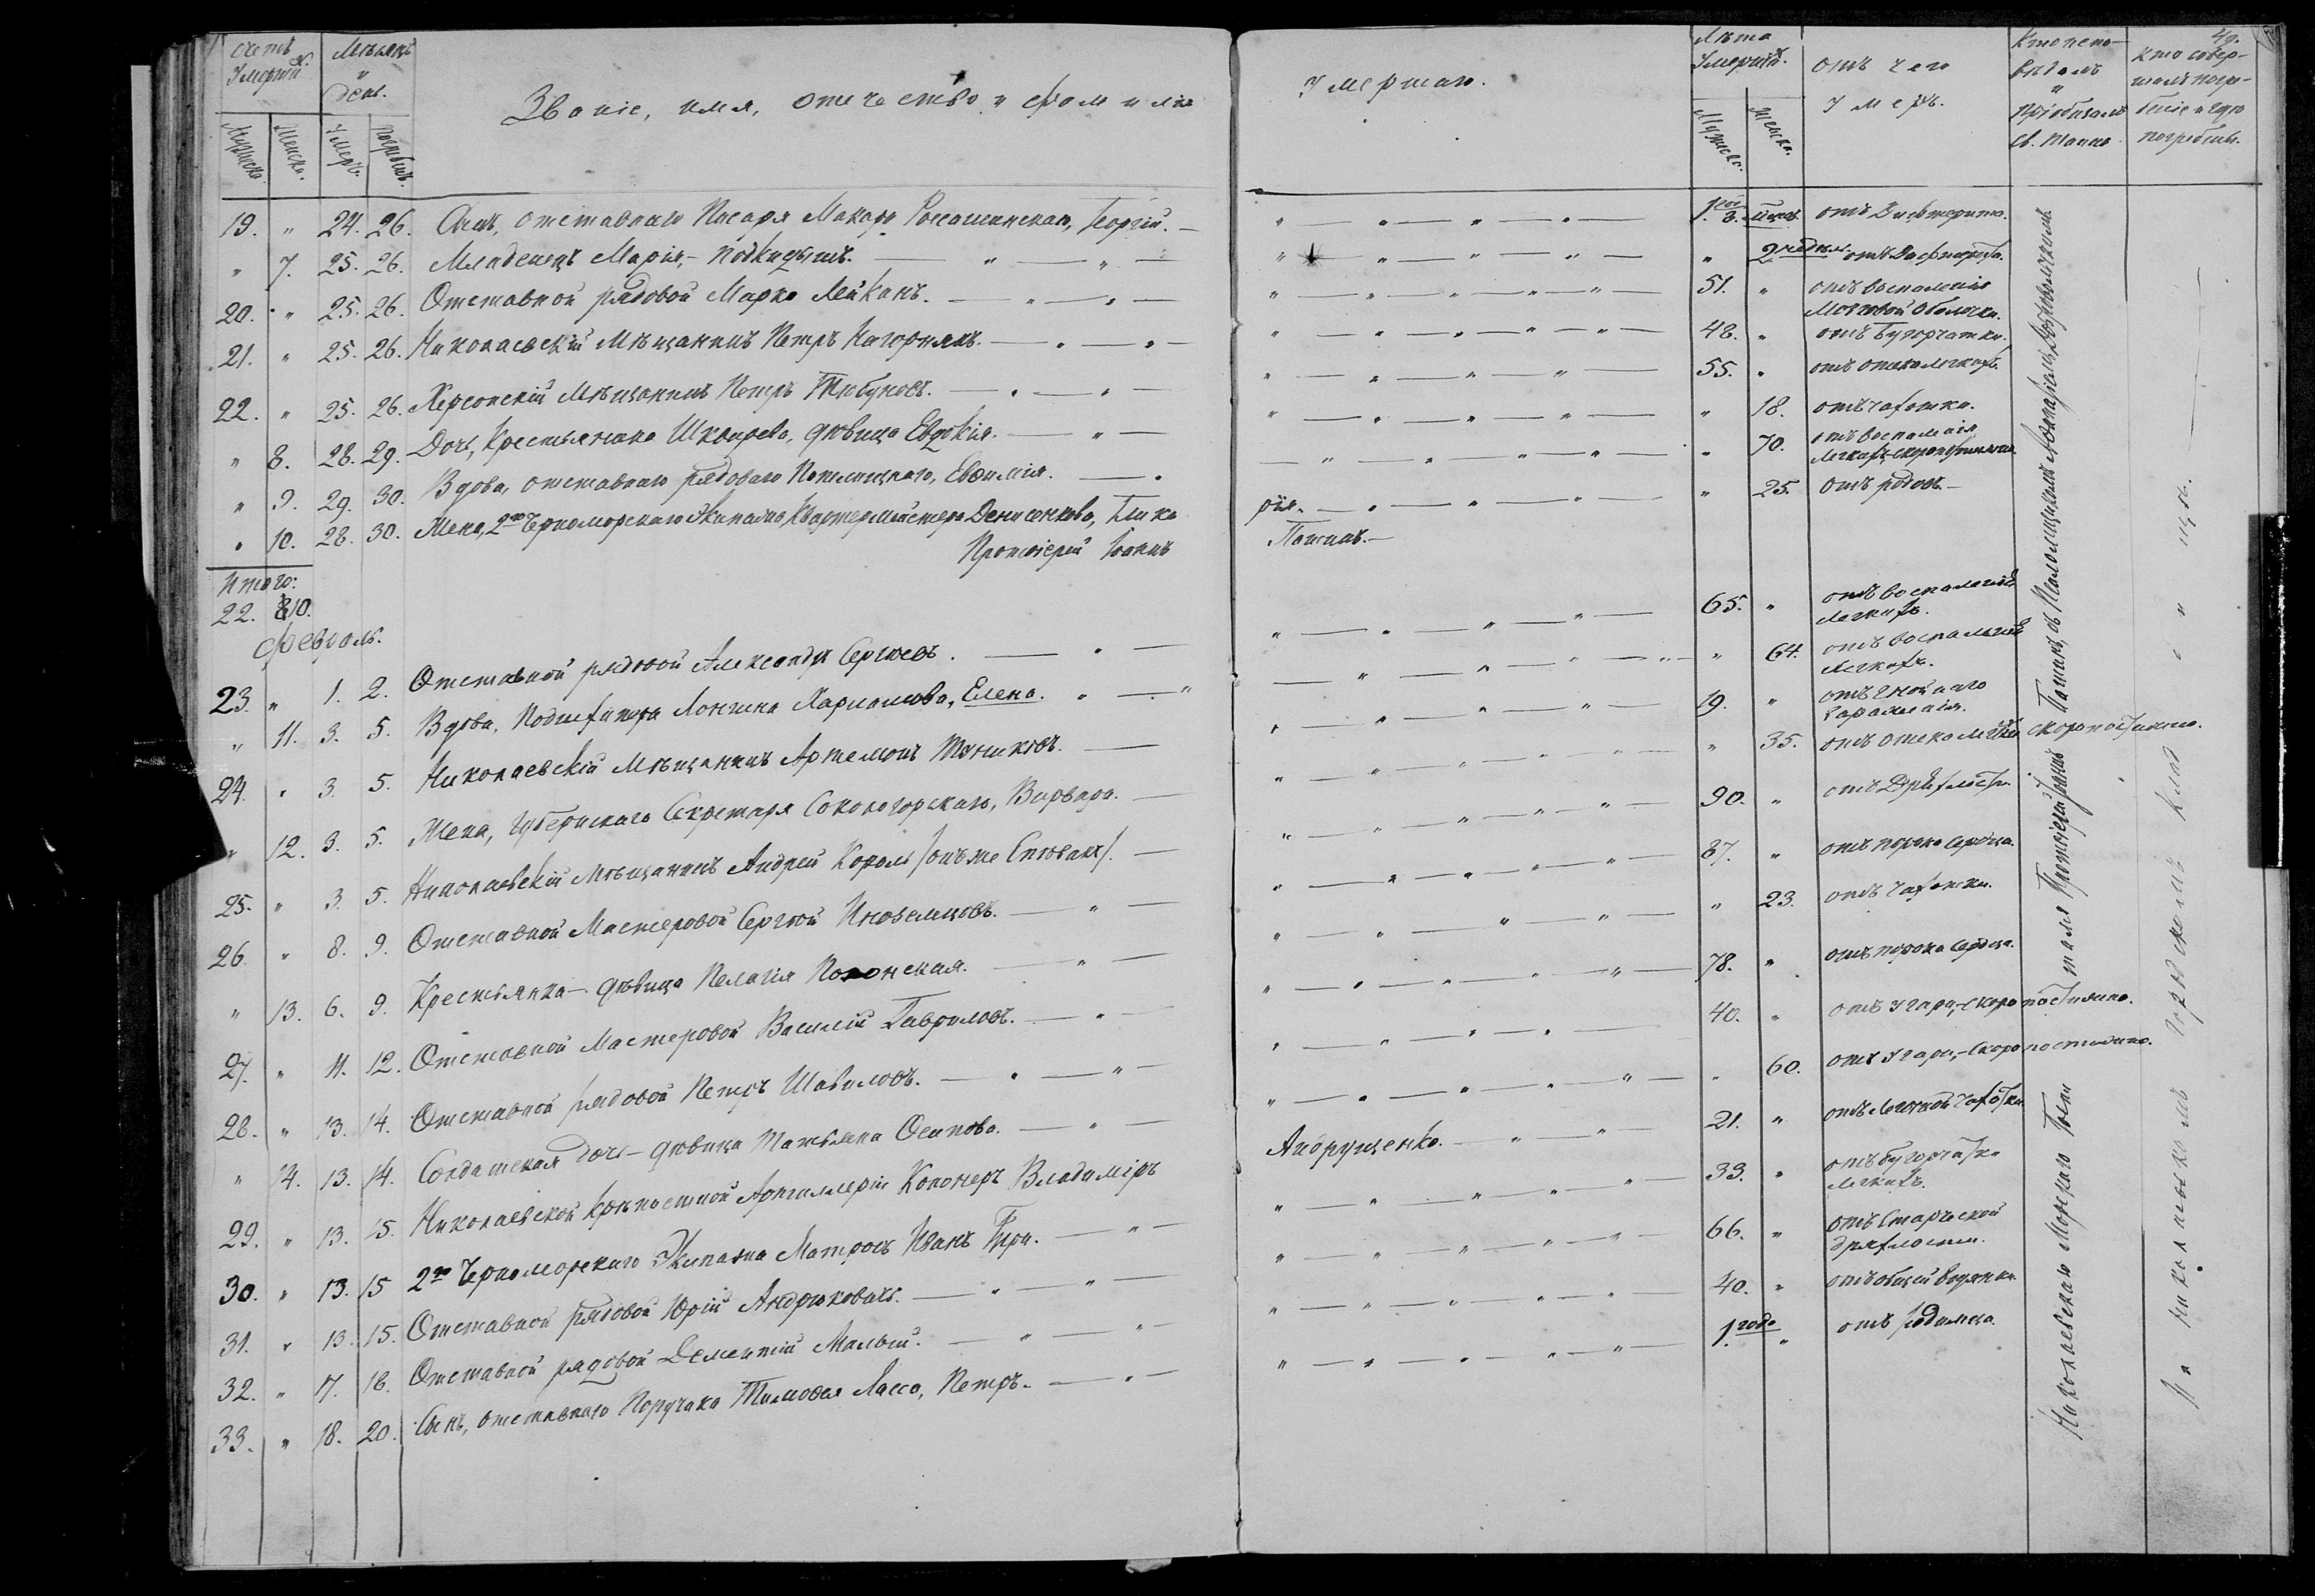 Счетъ Умершихъ. Мѣсяцъ и день. Званіе, имя, отчество и фамилія Умершаго. Лѣта Умершихъ. Отъ чего умеръ. Кто исповѣдалъ и пріобщалъ Св. Таинъ. Кто совершалъ погребеніе и гдѣ погребены.
Мужска. Женска. Умеръ. Погребенъ. Мужска. Женска.
19. „ 24. 26. Сынъ, отставнаго Писаря Макара Россошинскаго, Георгій. 1. 3. отъ Дифтерита.
„ 7. 25. 26. Младенецъ Марія,- подкидышъ. „ 2 недѣль
20. „ 25. 26. Отставной рядовой Марко Лейканъ. 51. „ отъ воспаленія
Мозговой Оболочки.
21. „ 25. 26. Николаевскій Мѣщанинъ Петръ Нагорнякъ. 48. „ отъ бугорчатки.
22. „ 25. 26. Херсонскій Мѣщанинъ Петръ Тюбуновъ. 55. „ отъ отека легкихъ.
„ 8. 28. 29. Дочь, Крестьянина Шкарева, дѣвица Евдокія. „ 18. отъ чахотки.
„ 9. 29. 30. Вдова, отставнаго рядоваго Евфимія. „ 70. отъ воспаленія
легкихъ, скоропостижно.
„ 10. 28. 30. Жена, 2го Черноморскаго Экипажа Квартермейстера Денисенкова, Глике
рія. „ 25. отъ родовъ.
Протоіерей Іоаннъ Гатинъ.
Итого:
22. 10.
Февраль.
23. „ 1. 2. Отставной рядовой Александръ Сергѣевъ. 65. „ отъ воспаленія
легкихъ.
„ 11. 3. 5. Вдова, Подшкипера Лонгина Харламова, Елена. „ 64. отъ воспаленія
легкихъ.
24. „ 3. 5. Николаевскій Мѣщанинъ Артемонъ 19. „ отъ гнойнаго
зараженія.
„ 12. 3. 5. Жена, Губернскаго Секретаря Сокологорскаго, Варвара. „ 35. отъ отека легкихъ скоропостижно.
25. „ 3. 5. Николаевскій Мѣщанинъ Андрей Король /онъ же 90. „ отъ Дряхлости.
26. „ 8. 9. Отставной Мастеровой Сергѣй Иноземцовъ. 87. „ отъ порока сердца.
„ 13. 6. 9. Крестьянка - дѣвица Пелагія Полонская. „ 23. отъ чахотки.
27. „ 11. 12. Отставной Мастеровой Василій Гавриловъ. 78. „ отъ порока сердца.
28. „ 13. 14. Отставной рядовой Петръ Шавиловъ. 40. „ отъ угара,- скоропостижно.
„ 14. 13. 14. Солдатская дочь - дѣвица Татьяна Осипова. „ 60. отъ угара,- скоропостижно.
29. „ 13. 15. Николаевской Крѣпостной Артиллеріи Канонеръ Владиміръ
Андрущенко. 21. „ отъ легочной чахотки.
30. „ 13. 15 2го Черноморскаго Экипажа Матросъ Иванъ 33. „ отъ бугорчатки
легкихъ.
31. „ 13. 15. Отставной рядовой Юрій 66. „ отъ Старческой
дряхлости.
32. „ 17. 18. Отставной рядовой Дементій Малый. 40. „ отъ общей водянки.
33. „ 18. 20. Сынъ, отставнаго Поручика Тимофея Лассо, Петръ. 1. года „ отъ родимца.
Николаевскаго Морскаго Протоіерей Іоаннъ Гатинъ, съ
На Николаевскомъ городскомъ